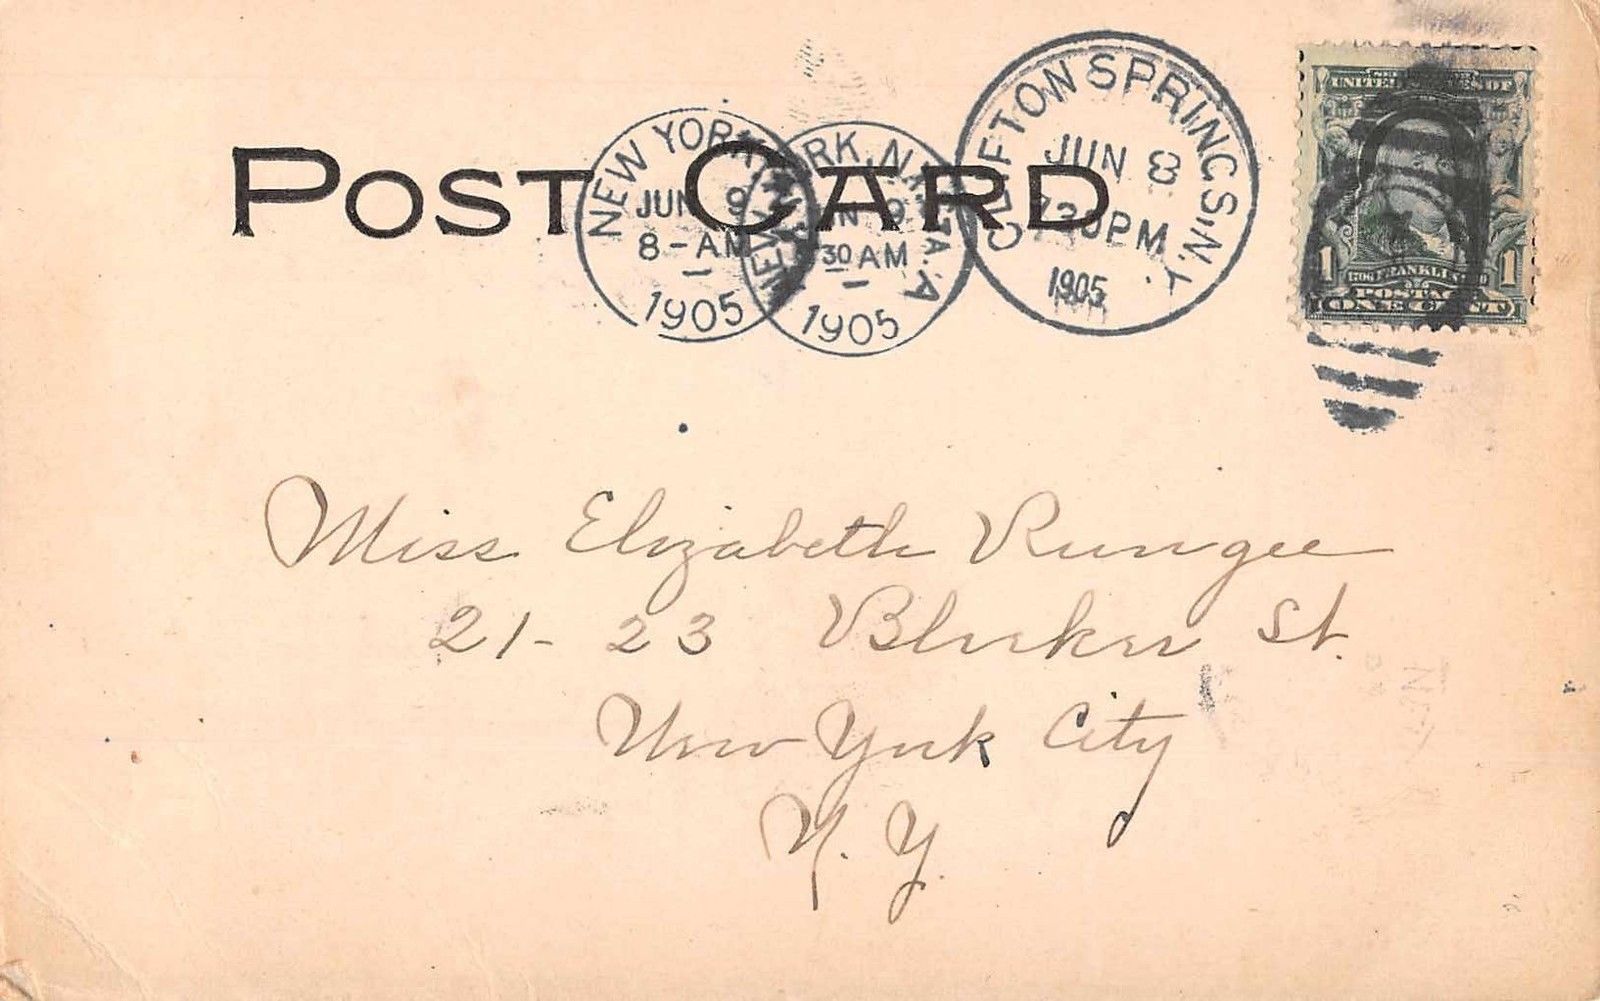 POST CARD
NEW YORK, N.Y.
JUN 9
8-AM
1905
RK, N.Y. STA. A
N 9
30 AM
1905
CLIFTON SPRINGS, N.Y.
JUN 8
730PM
1905
UNITED STATES OF
1 FRANKLIN 1
POSTAGE
ONE CENT
Miss Elizabeth Rungee
21-23 Bleeker St.
New York City
N. Y.